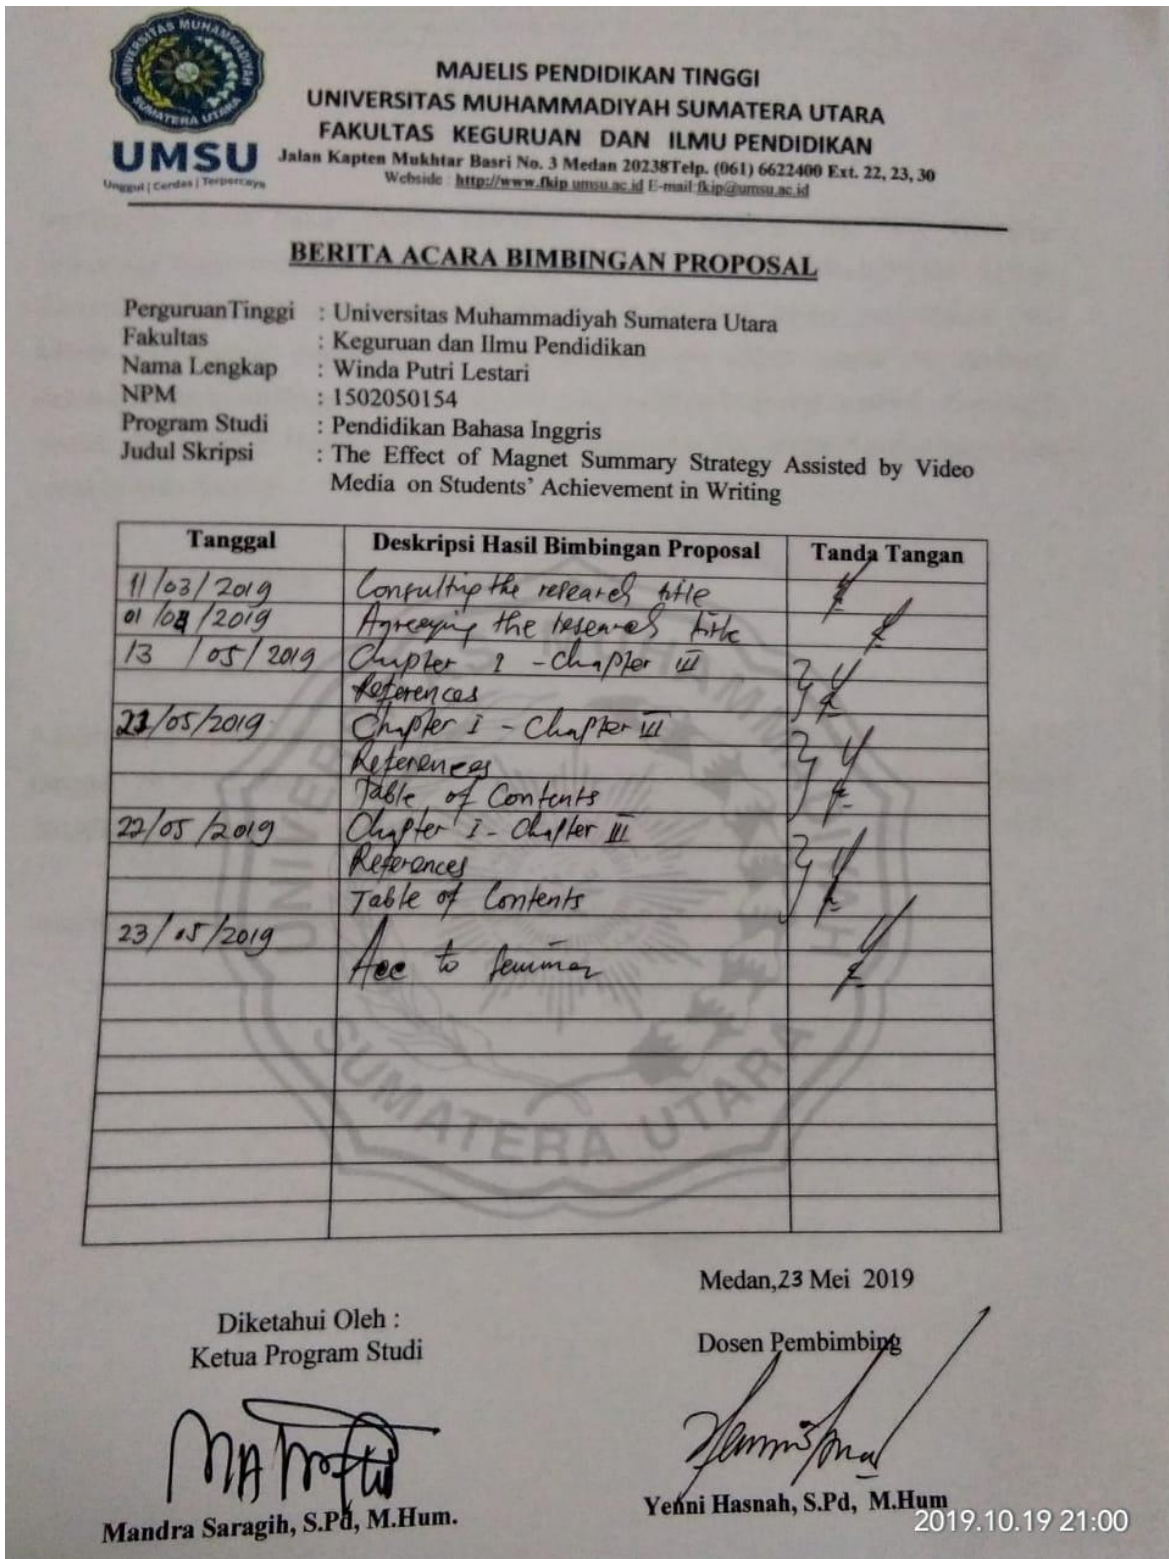 UNIVERSITAS MUHAMMADIYAH
SUMATERA UTARA
UMSU
Unggul | Cerdas | Terpercaya
MAJELIS PENDIDIKAN TINGGI
UNIVERSITAS MUHAMMADIYAH SUMATERA UTARA
FAKULTAS KEGURUAN DAN ILMU PENDIDIKAN
Jalan Kapten Mukhtar Basri No. 3 Medan 20238Telp. (061) 6622400 Ext. 22, 23, 30
Webside : http://www.fkip.umsu.ac.id E-mail:fkip@umsu.ac.id
BERITA ACARA BIMBINGAN PROPOSAL
PerguruanTinggi : Universitas Muhammadiyah Sumatera Utara
Fakultas : Keguruan dan Ilmu Pendidikan
Nama Lengkap : Winda Putri Lestari
NPM : 1502050154
Program Studi : Pendidikan Bahasa Inggris
Judul Skripsi : The Effect of Magnet Summary Strategy Assisted by Video
Media on Students' Achievement in Writing
Tanggal Deskripsi Hasil Bimbingan Proposal Tanda Tangan
11/03/2019 Consulting the research title
01/ /2019 Agreeying the research title
13 /05/2019 Chapter I - Chapter III
References
21/05/2019 Chapter I - Chapter III
References
Table of Contents
22/05/2019 Chapter I - Chapter III
References
Table of Contents
23/05/2019
Acc to Seminar
UNIVERSITAS MUHAMMADIYAH
SUMATERA UTARA
Medan,23 Mei 2019
Diketahui Oleh :
Ketua Program Studi
Dosen Pembimbing
Mandra Saragih, S.Pd, M.Hum.
Yenni Hasnah, S.Pd, M.Hum
2019.10.19 21:00